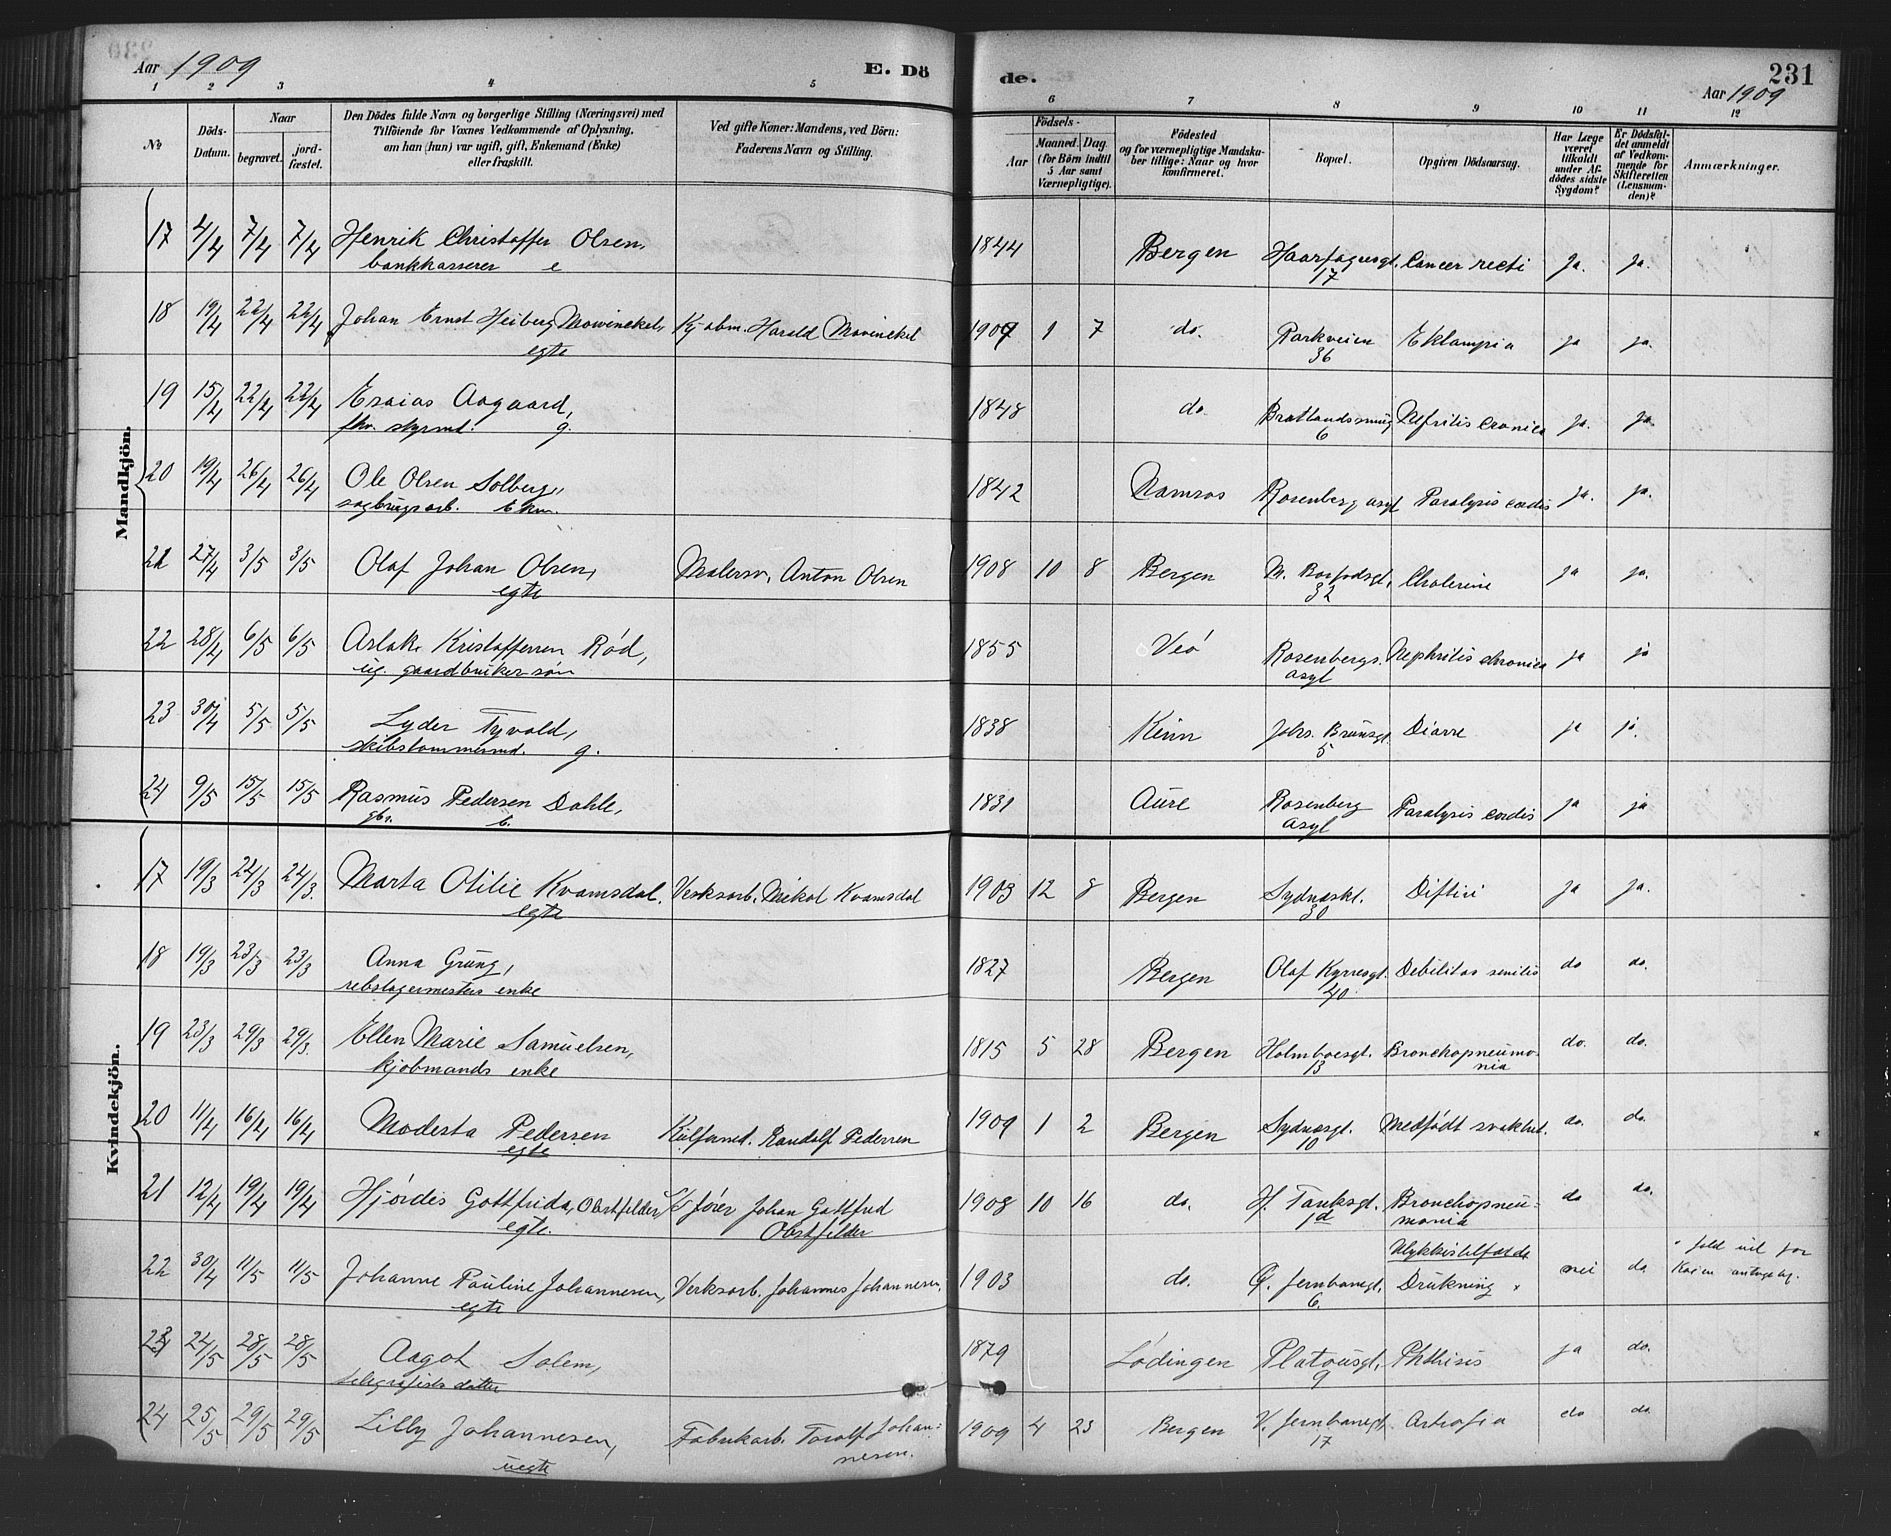 Aar 1909 E. Dö de. 231
Aar 1909
1 2 3 4 5 6 7 8 9 10 11 12
No Döds-Datum. Naar begravet. jord-fæstet. Den Dödes fulde Navn og borgerlige Stilling (Næringsvei) med Tilföiende for Voxnes Vedkommende af Oplysning, om han (hun) var ugift, gift, Enkemand (Enke) eller fraskilt. Ved gifte Koner: Mandens, ved Börn: Faderens Navn og Stilling. Födsels- Aar Maaned. Dag. (for Börn indtil 5 Aar samt Værnepligtige). Födested og for værnepligtige Mandskaber tillige: Naar og hvor konfirmeret. Bopæl. Opgiven Dödsaarsag. Har Læge været tilkaldt under Afdödes sidste Sygdom? Er Dödsfaldet anmeldt af Vedkommende for Skifteretten (Lensmanden)? Anmærkninger.
Mandkjön.
17 4/4 7/4 7/4 Henrik Christoffer Olsen, 1844 Bergen Haarfagresgt. Cancer recti Ja. ja.
bankkasserer e 17
18 19/4 22/4 22/4 Johan Ernst Heiberg Mowinckel, Kjøbm. Harald Mowinckel 1909 1 7 do. Parkveien Eklampia ja ja.
egte 36
19 15/4 22/4 22/4 Esaias Aagaard, 1848 do. Nefritis cronica ja. ja.
fhv. styrmd. g. 6
20 19/4 26/4 26/4 Ole Olsen Solberg, 1842 Namsos Rosenberg asyl Paralysis cordis ja. ja.
sagbrugsarb. Ekm.
21 27/4 3/5 3/5 Olaf Johan Olsen, Malersv. Anton Olsen 1908 10 8 Bergen Cholerine ja ja.
egte 32
22 28/4 6/5 6/5 Aslak Kristoffersen Rød, 1855 Veø Rosenbergs Nephritis chronica ja ja
ug. gaardbruker søn asyl
23 30/4 5/5 5/5 Lyder Tyvold, 1838 Kinn Johs. Brunsgt. Diarre ja ja.
skibstømmermd. g. 5
24 9/5 15/5 15/5 Rasmus Pedersen Dahle, 1831 Aure Rosenberg Paralysis cordis ja ja
gbr. asyl
Kvindekjön.
17 19/3 24/3 24/3. Marta Otilie Kvamsdal, Verksarb. Nikol Kvamsdal 1903 12 8 Bergen Sydnæskl. Difteri ja ja.
egte 30
18 19/3 23/3 23/3 Anna Grung, 1827 Bergen Olaf Kyrresgt. Debilitas senilis do do.
rebslagermesters enke 40
19 23/3 29/3 29/3. Ellen Marie Samuelsen, 1815 5 28 Bergen Holmboesgt. Bronchopneumo-
kjøbmands enke 13 nia do. do.
20 11/4 16/4 16/4 Modesta Pedersen Randolf Pedersen 1909 1 2 Bergen Sydnæsgt. Medfødt svakhet. do. do.
egte 10
21 12/4 19/4 19/4 Hjørdis Gottfrida Obstfelder, Johan Gottfred 1908 10 16 do. H. Tanksgt. Bronchopneu- do do.
egte. Obstfelder 1d monia
22 30/4 11/5 11/5 Johanne Pauline Johannesen, Verksarb. Johannes Johannesen, 1903 do. Ø. Jernbanegt. Ulykkestilfælde nei do.
egte 6. Drukning fald ut for Kaien antagelig.
23 24/5 28/5 28/5 Aagot Solem, 1879 Lødingen Platousgt. Phthisis ja do.
telegrafists datter 9
24 25/5 29/5 29/5 Lilly Johannesen, Fabrikarb. Toralf Johan- 1909 4 23 Bergen V. Jernbanegt. Astrofia do do
uegte nesen. 17